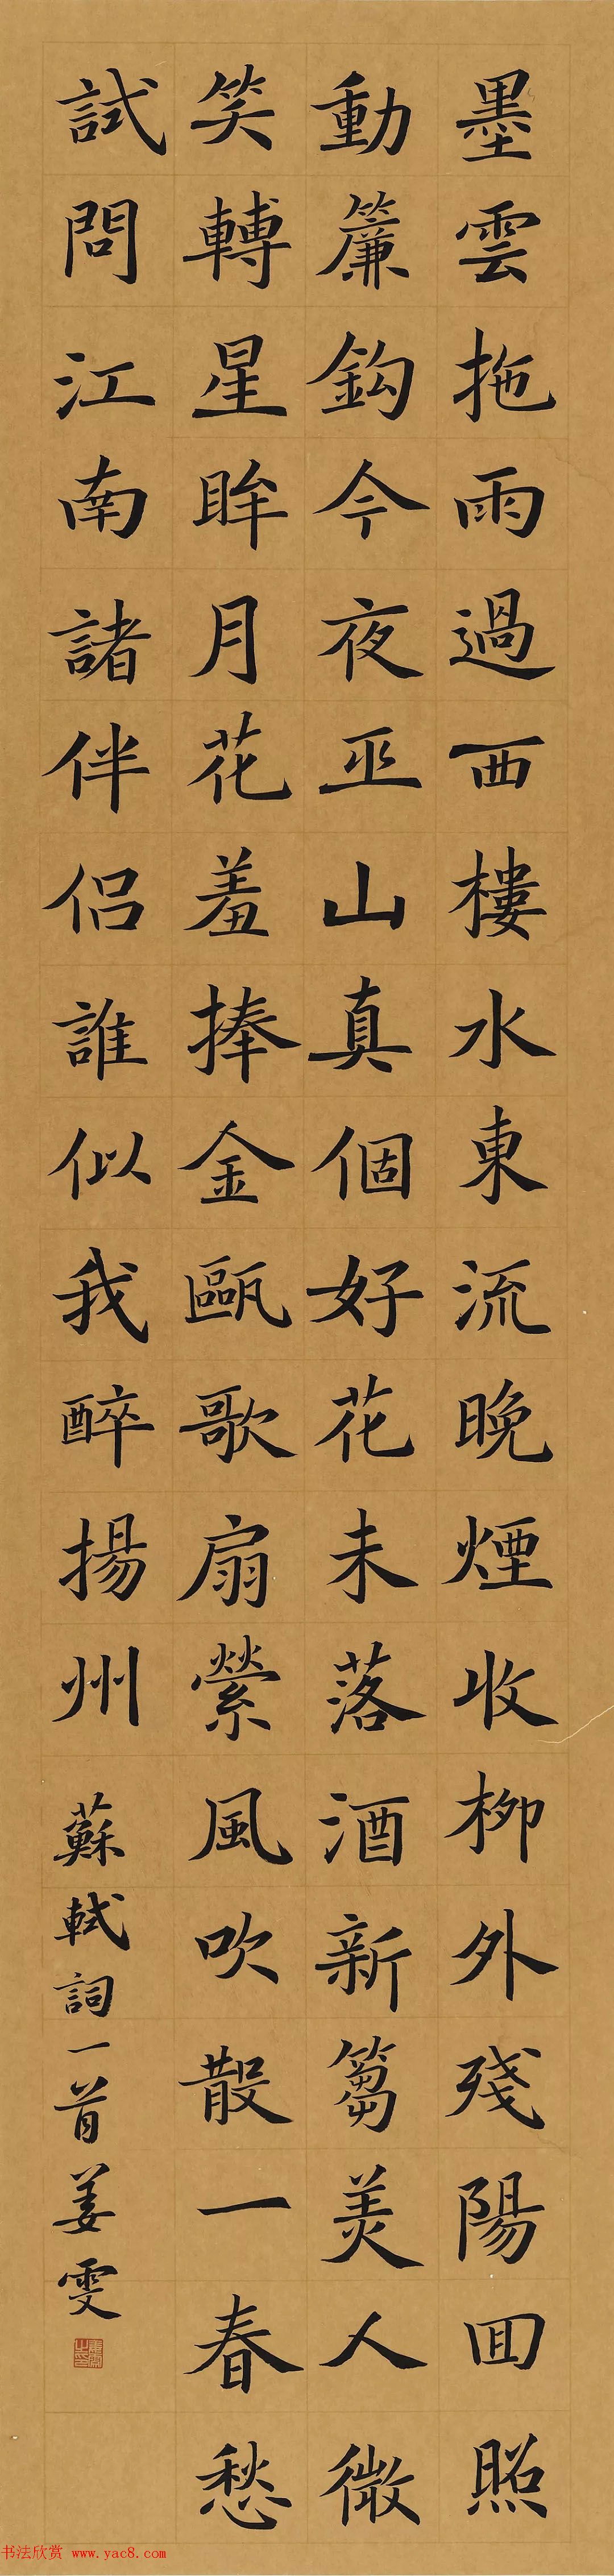 墨雲拖雨過西樓水東流晚煙收柳外殘陽回照
動簾鈎今夜巫山真個好花未落酒新篘美人微
笑轉星眸月花羞捧金甌歌扇縈風吹散一春愁
試問江南諸伴侶誰似我醉揚州
蘇軾詞一首姜雯
书法欣赏 www.yac8.com